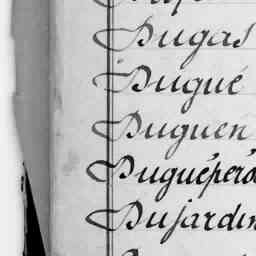 Dugas
Dugué
Duguen
Duguépéro
Dujardin